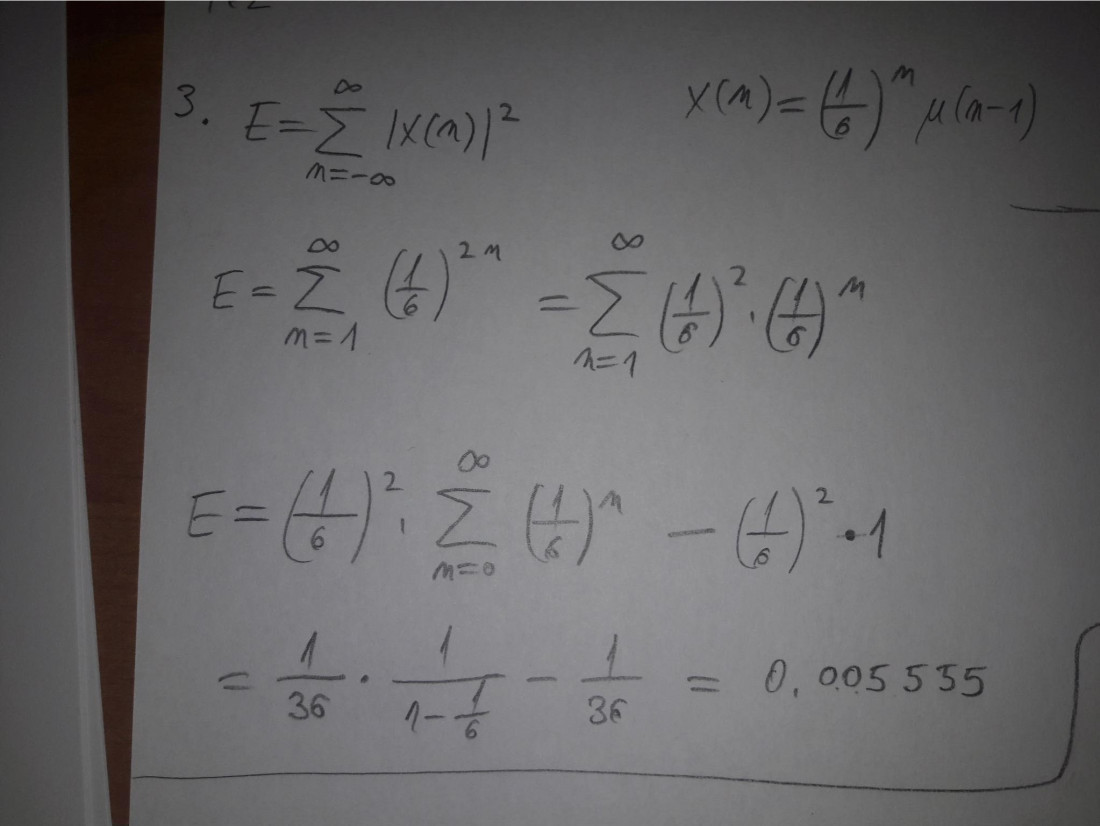 3. E = ∑_{n=-∞}^{∞} |x(n)|² x(n) = (1/6)ⁿ μ(n-1)
E = ∑_{n=1}^{∞} (1/6)^{2n} = ∑_{n=1}^{∞} (1/6)² · (1/6)ⁿ
E = (1/6)² · ∑_{n=0}^{∞} (1/6)ⁿ - (1/6)² · 1
= 1/36 · 1/(1 - 1/6) - 1/36 = 0.005555